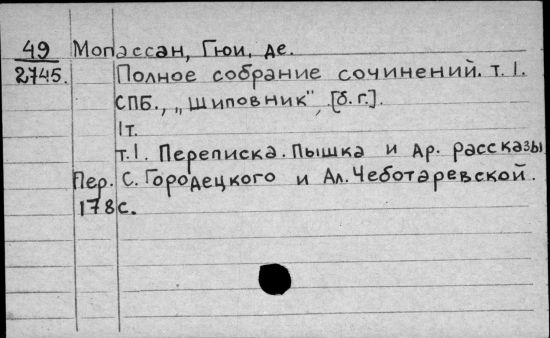 49 Мопассан, Гюи, де.
2745. Полное собрание сочинений. т. 1.
СПБ., „Шиповник", [б. г.].
1т.
т.1. Переписка. Пышка и др. рассказы
Пер. С. Городецкого и Ал. Чеботаревской.
178 с.